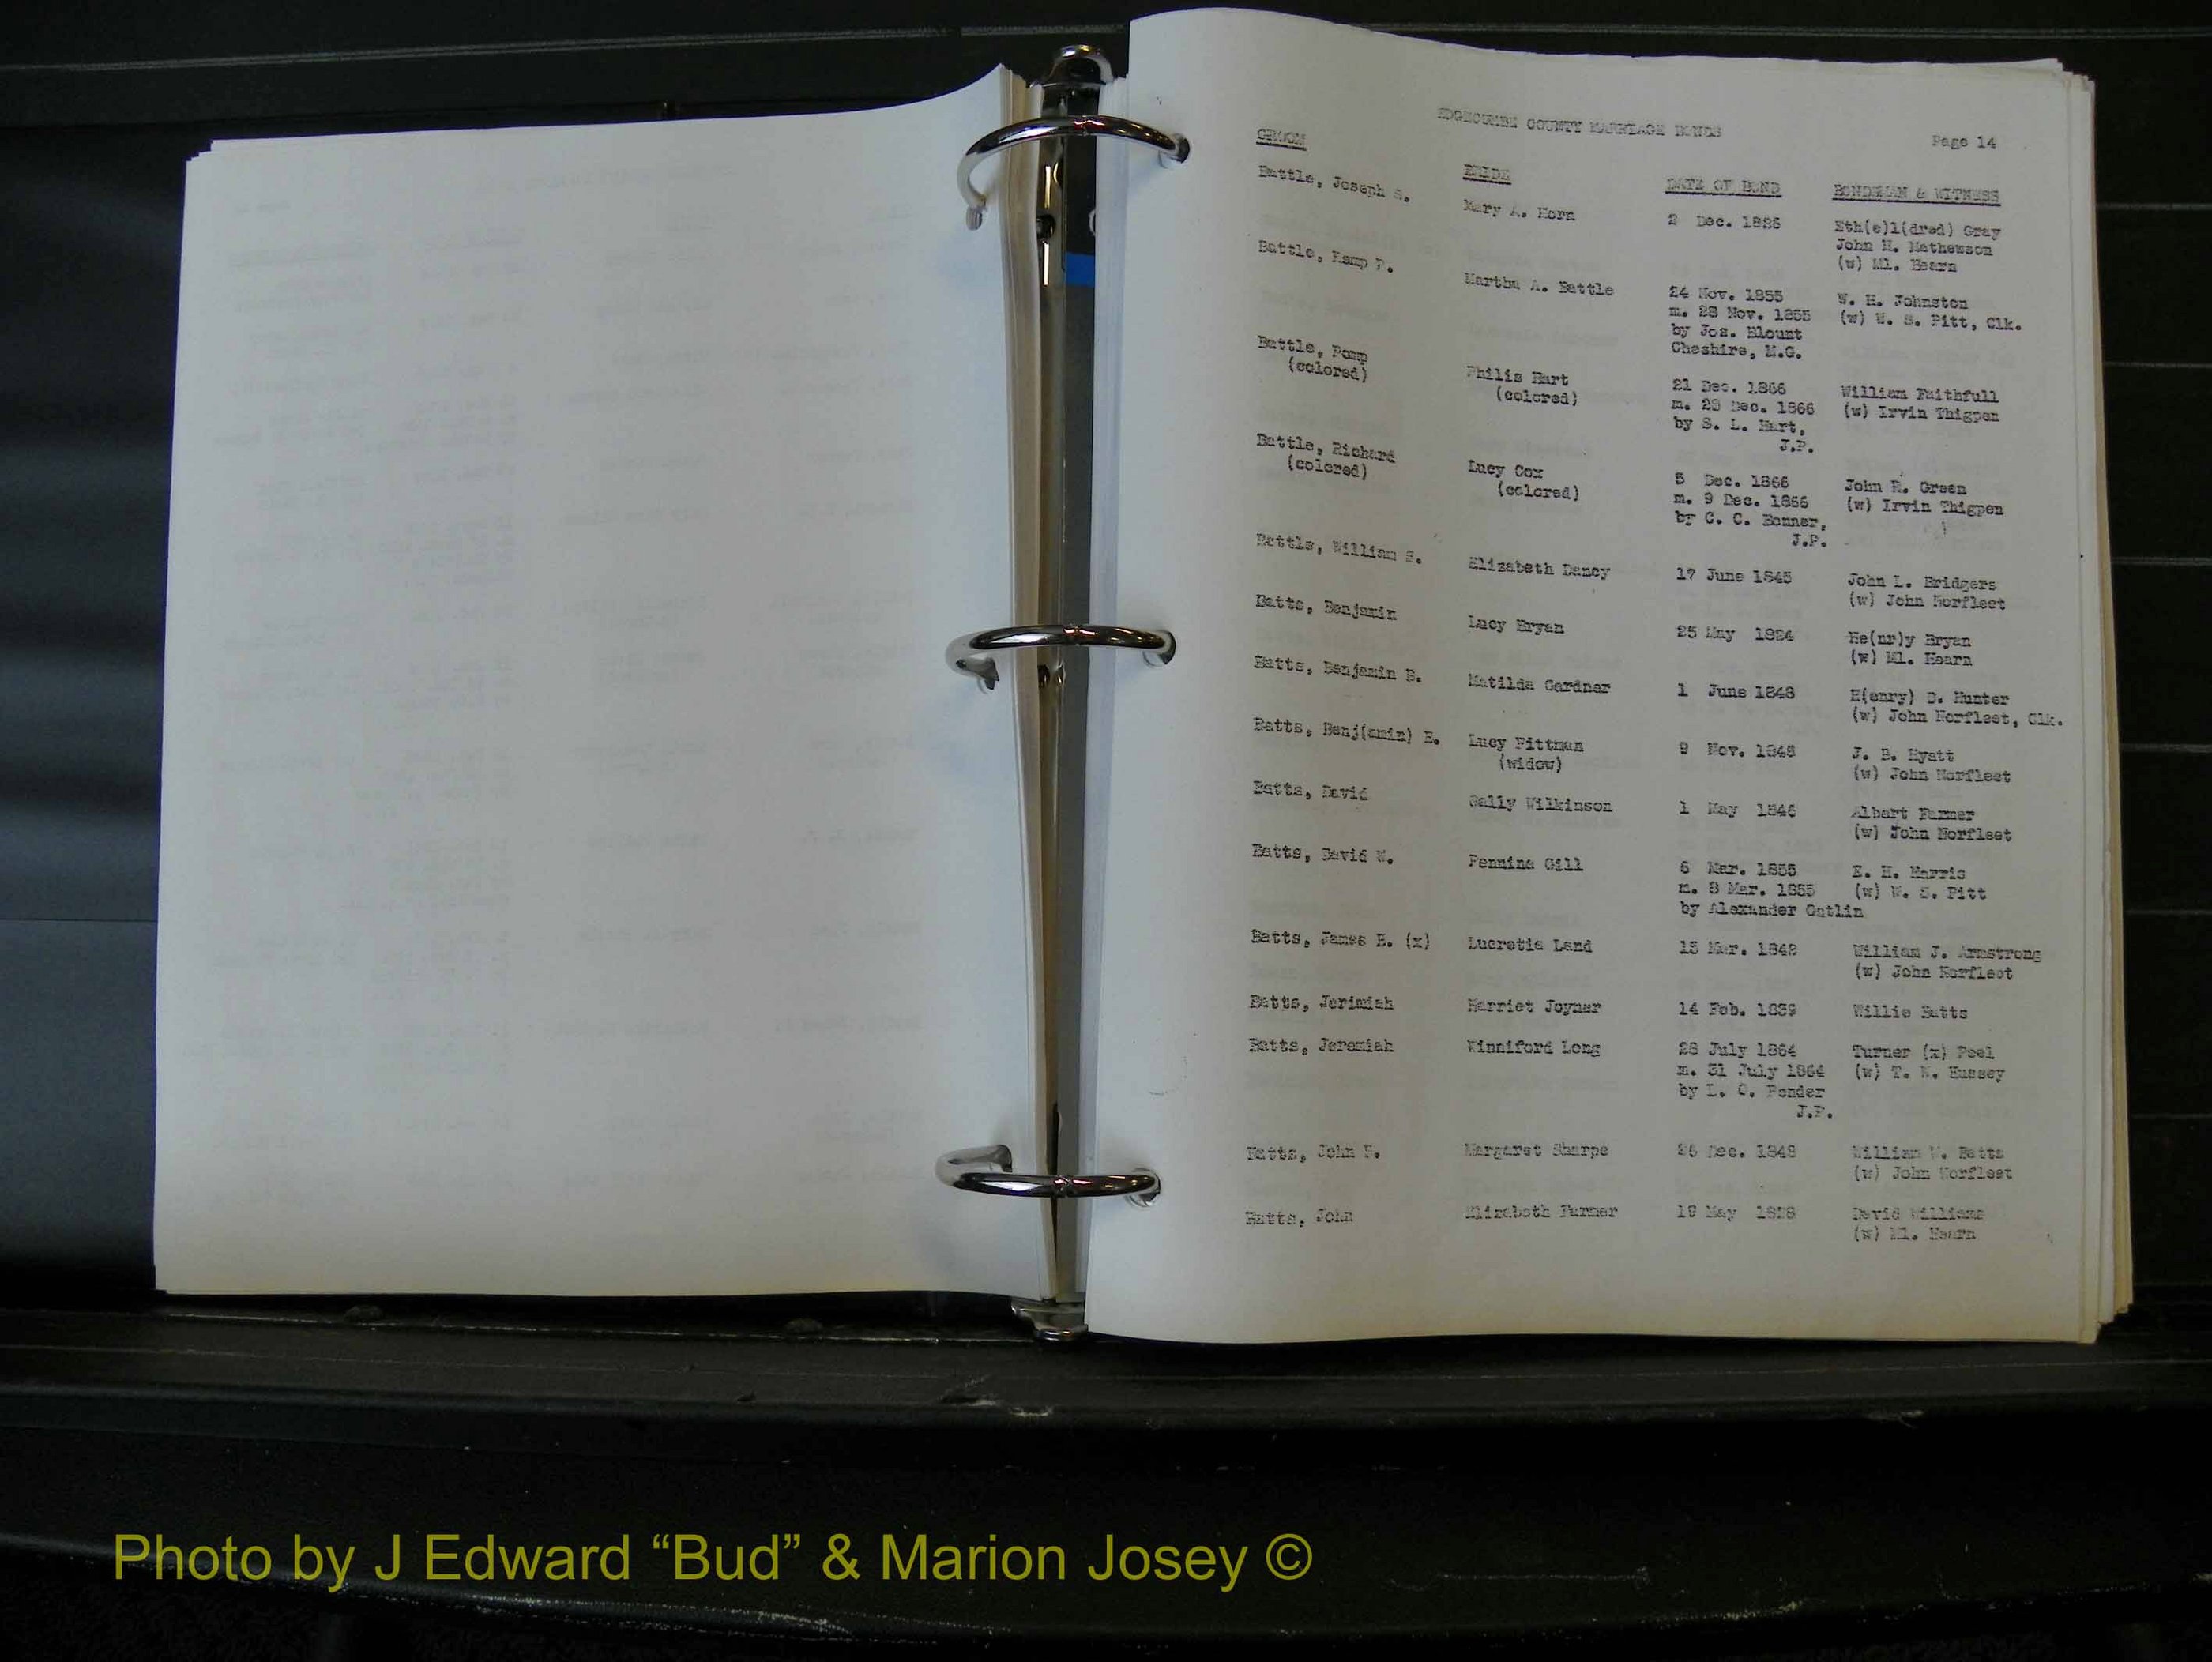 EDGECOMBE COUNTY MARRIAGE BONDS
Page 14
GROOM BRIDE DATE OF BOND BONDSMAN & WITNESS
Battle, Joseph S. Mary A. Horn 2 Dec. 1826 Eth(e)l(dred) Gray
John H. Mathewson
(w) Ml. Hearn
Battle, Kemp P. Martha A. Battle 24 Nov. 1855 W. H. Johnston
m. 28 Nov. 1855 (w) W. S. Pitt, Clk.
by Jos. Blount
Cheshire, M.G.
Battle, Pomp Philis Hart 21 Dec. 1866 William Faithfull
(colored) (colored) m. 29 Dec. 1866 (w) Irvin Thigpen
by S. L. Hart,
J.P.
Battle, Richard Lucy Cox 5 Dec. 1866 John R. Green
(colored) (colored) m. 9 Dec. 1866 (w) Irvin Thigpen
by C. C. Bonner,
J.P.
Battle, William S. Elizabeth Dancy 17 June 1845 John L. Bridgers
(w) John Norfleet
Batts, Benjamin Lucy Bryan 25 May 1824 He(nr)y Bryan
(w) Ml. Hearn
Batts, Benjamin B. Matilda Gardner 1 June 1848 H(enry) D. Hunter
(w) John Norfleet, Clk.
Batts, Benj(amin) B. Lucy Pittman 9 Nov. 1848 J. B. Hyatt
(widow) (w) John Norfleet
Batts, David Sally Wilkinson 1 May 1846 Albert Farmer
(w) John Norfleet
Batts, David W. Pennina Gill 6 Mar. 1855 E. H. Harris
m. 8 Mar. 1855 (w) W. S. Pitt
by Alexander Gatlin
Batts, James B. (x) Lucretia Land 15 Mar. 1842 William J. Armstrong
(w) John Norfleet
Batts, Jerimiah Harriet Joyner 14 Feb. 1839 Willie Batts
Batts, Jeremiah Winniford Long 28 July 1864 Turner (x) Peel
m. 31 July 1864 (w) T. W. Hussey
by L. C. Pender
J.P.
Batts, John F. Margaret Sharpe 26 Dec. 1848 William W. Batts
(w) John Norfleet
Batts, John Elizabeth Farmer 19 May David Williams
(w) Ml. Hearn
Photo by J Edward “Bud” & Marion Josey ©